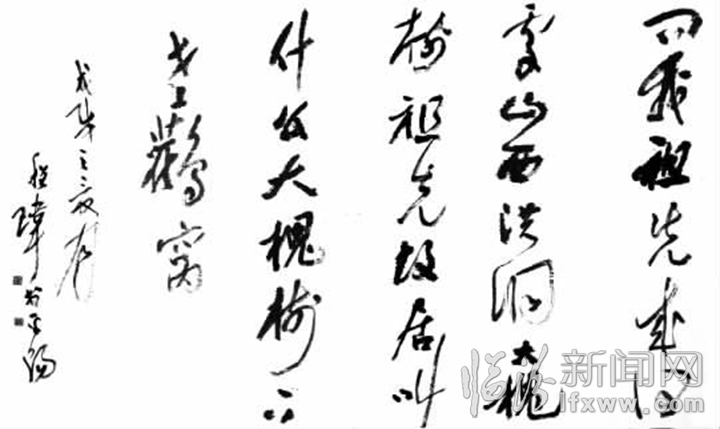 问我祖先来何
处山西洪洞大槐
树祖先故居叫
什么大槐树下
老鹳窝
於平陽
临汾新闻网
lfxww.com